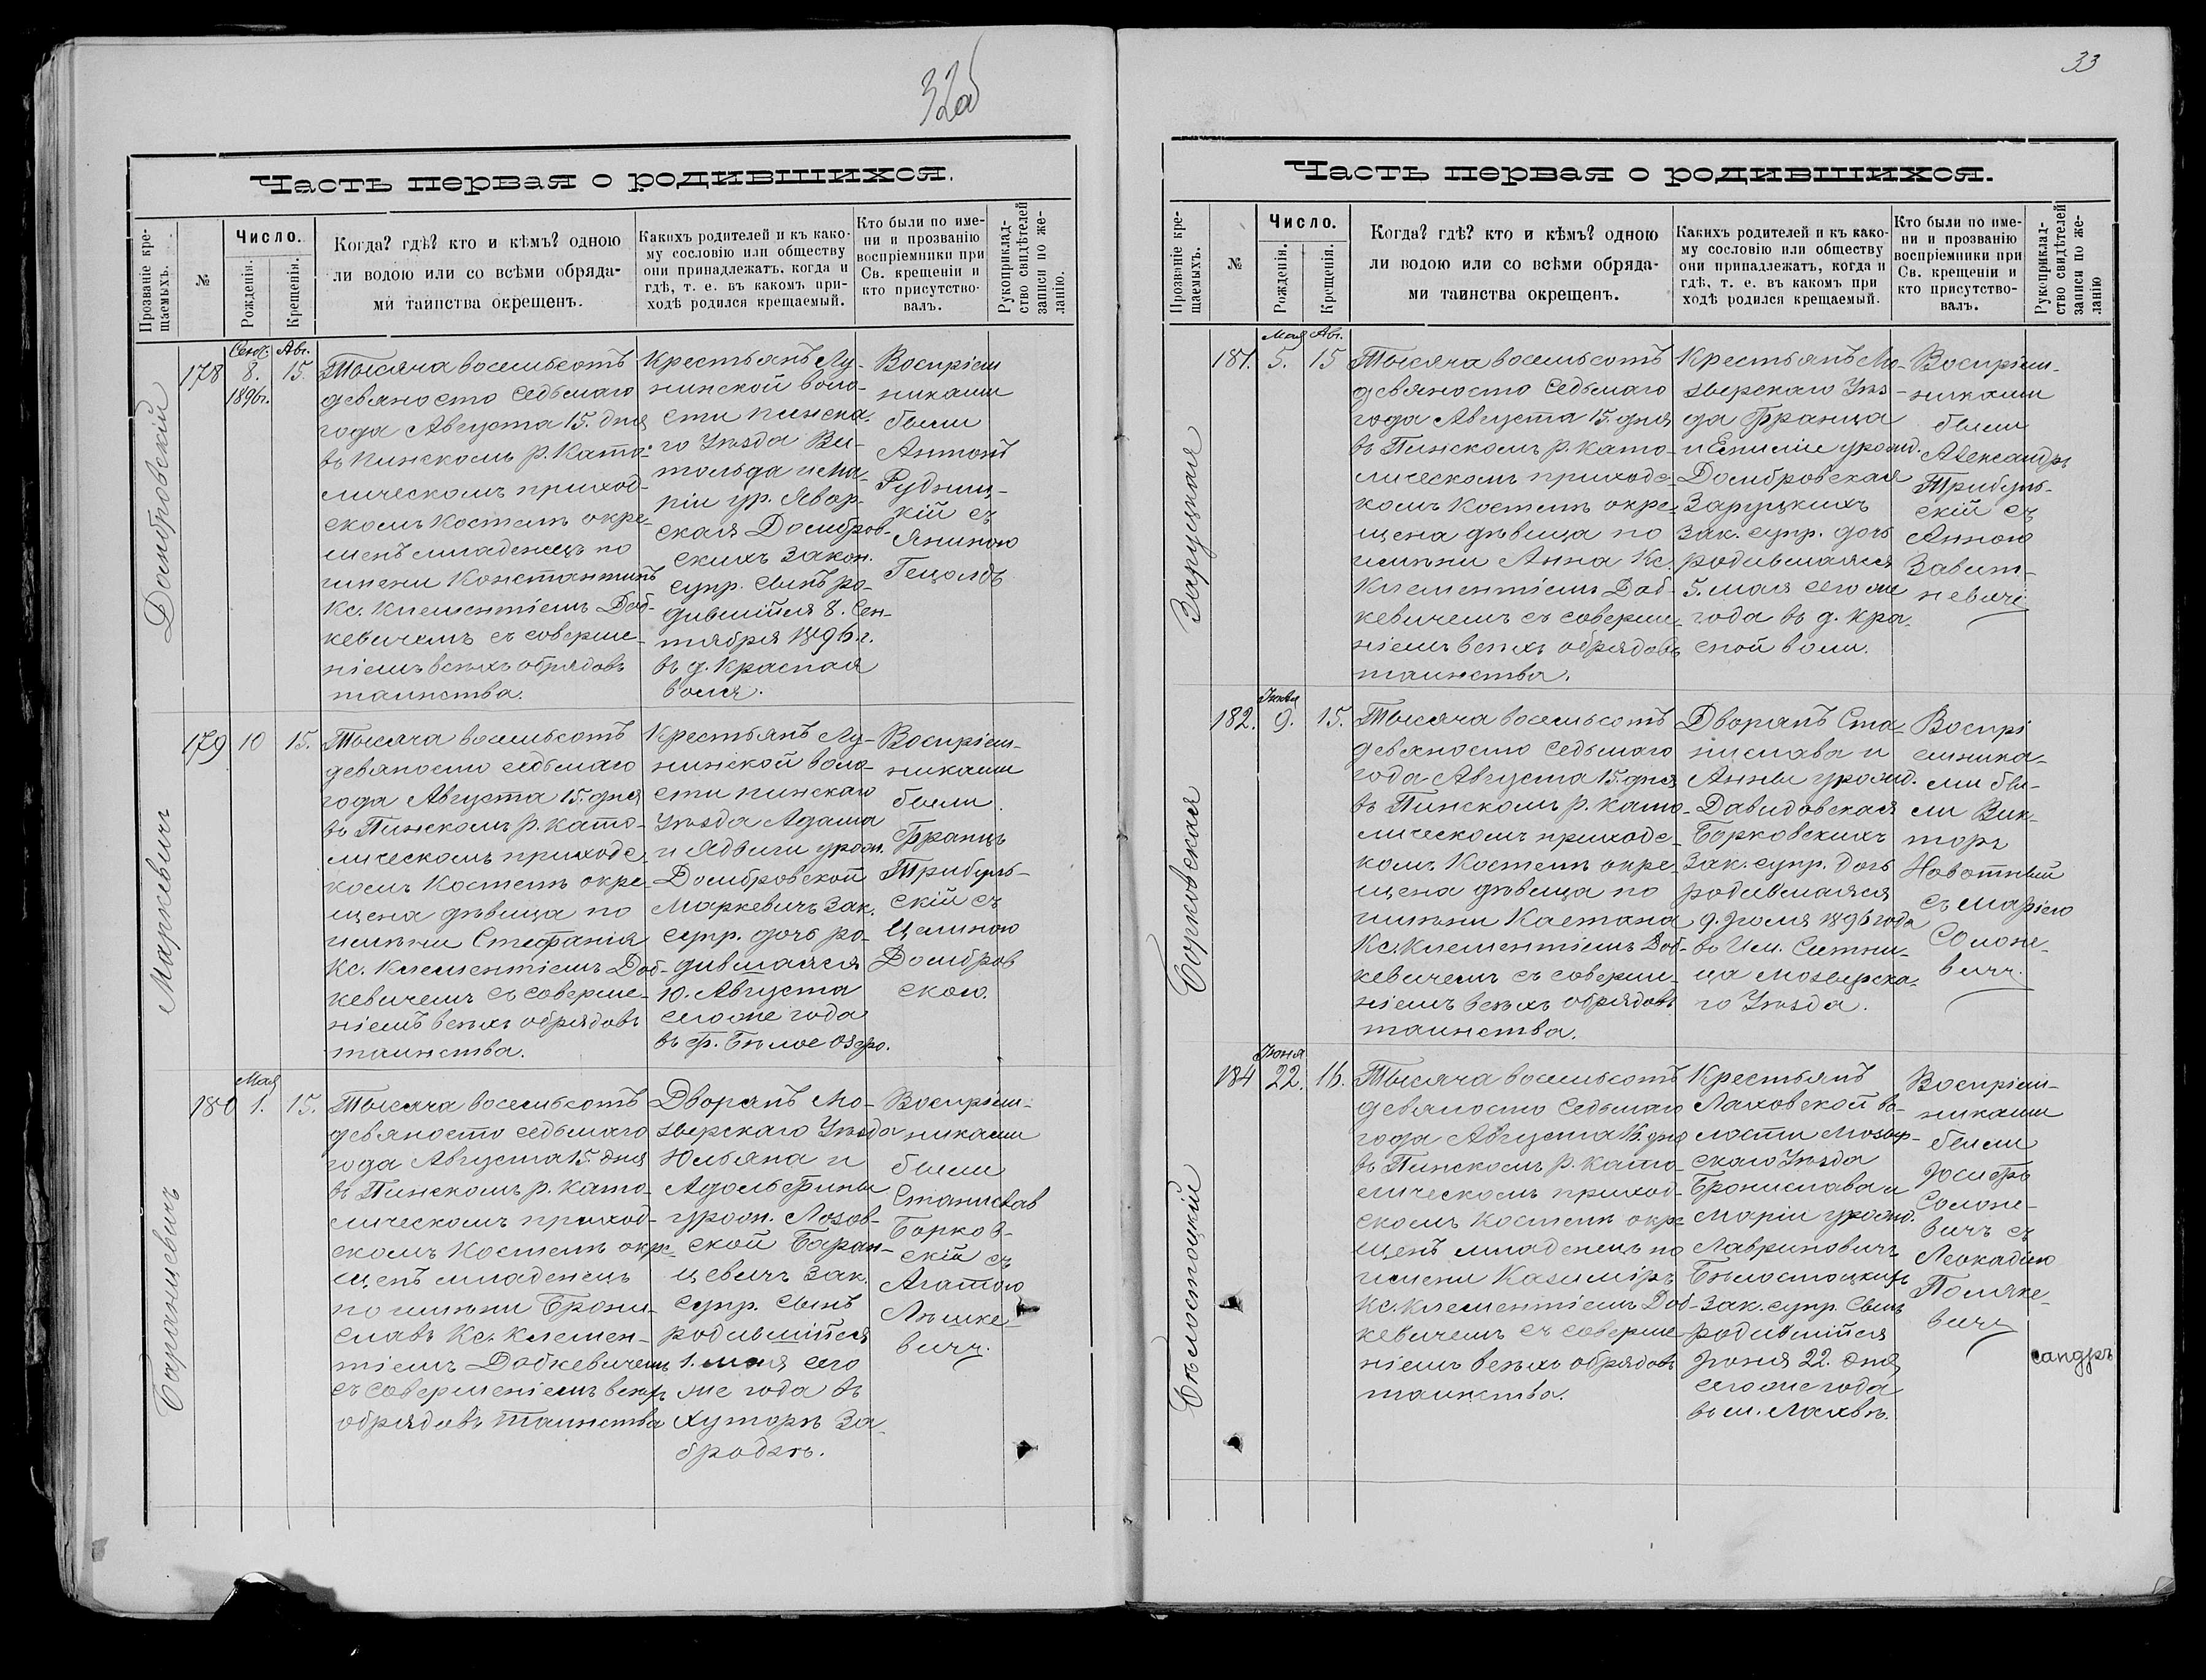 32об
Часть первая о родившихся.
Прозваніе кре-
щаемыхъ.
№
Число.
Рожденія.
Крещенія.
Когда? гдѣ? кто и кѣмъ? одною
ли водою или со всѣми обряда-
ми таинства окрещенъ.
Какихъ родителей и къ како-
му сословію или обществу
они принадлежатъ, когда и
гдѣ, т. е. въ какомъ при-
ходѣ родился крещаемый.
Кто были по име-
ни и прозванію
воспріемники при
Св. крещеніи и
кто присутство-
валъ.
Рукоприклад-
ство свидѣтелей
записи по же-
ланію.
Домбровскій
178
Сент.
8.
1896г.
Авг.
15.
Тысяча восемьсотъ
девяносто седьмаго
года Августа 15. дня
въ Пинскомъ р. Като-
лическомъ приход-
скомъ Костелѣ окре-
щенъ младенецъ по
имени Константинъ
Кс. Климентіемъ Доб-
кевичемъ съ соверше-
ніемъ всѣхъ обрядовъ
таинства.
Крестьянъ Лу-
нинской воло-
сти Пинска-
го Уѣзда Ви-
тольда и Ма-
ріи ур. Явор-
ская Домбров-
скихъ закон.
супр. сынъ ро-
дившійся 8. Сен-
тября 1896 г.
въ д. Красная
воля.
Воспріем
никами
были
Антонъ
Рудниц-
кій съ
Яниною
Гецолдъ
Маркевичъ
179
10
15.
Тысяча восемьсотъ
девяносто седьмаго
года Августа 15. дня
въ Пинскомъ р. Като-
лическомъ приходс-
комъ Костелѣ окре-
щена дѣвица по
имени Стефанія
Кс. Климентіемъ Доб-
кевичемъ съ соверше-
ніемъ всѣхъ обрядовъ
таинства.
Крестьянъ Лу-
нинской воло-
сти Пинскаго
Уѣзда Адама
и Ядвиги урож.
Домбровской
Маркевичъ зак.
супр. дочь ро-
дившаяся
10. Августа
сего же года
въ ф. Бѣлое Озеро.
Воспріем-
никами
были
Францъ
Трибуль-
скій съ
Целиною
Домбров
скою.
Баранцевичъ
180
Мая
1.
15.
Тысяча восемьсотъ
девяносто седьмаго
года Августа 15. дня
въ Пинскомъ р. Като-
лическомъ приход-
скомъ Костелѣ окре-
щенъ младенецъ
по имени Брони-
славъ Кс. Климен-
тіемъ Добкевичемъ
съ совершеніемъ всѣхъ
обрядовъ таинства
Дворянъ Мо-
зырскаго Уѣзда
Юльяна и
Адольфины
урож. Лозов-
ской Баран-
цевичъ зак.
супр. сынъ
родившійся
1. мая сего
же года въ
хуторѣ За-
бродьѣ.
Воспріем-
никами
были
Станиславъ
Борков-
скій съ
Агатою
Лѣшке-
вичъ.
33
Часть первая о родившихся.
Прозваніе кре-
щаемыхъ.
№
Число.
Рожденія.
Крещенія.
Когда? гдѣ? кто и кѣмъ? одною
ли водою или со всѣми обряда-
ми таинства окрещенъ.
Какихъ родителей и къ како-
му сословію или обществу
они принадлежатъ, когда и
гдѣ, т. е. въ какомъ при
ходѣ родился крещаемый.
Кто были по име-
ни и прозванію
воспріемники при
Св. крещеніи и
кто присутство-
валъ.
Рукоприклад-
ство свидѣтелей
записи по же-
ланію
Заруцкая
181.
Мая
5.
Авг.
15
Тысяча восемьсотъ
девяносто седьмаго
года Августа 15. дня
въ Пинскомъ р. Като-
лическомъ приходс-
комъ Костелѣ окре-
щена дѣвица по
имени Анна Кс.
Климентіемъ Доб-
кевичемъ съ соверше-
ніемъ всѣхъ обрядовъ
таинства.
Крестьянъ Мо-
зырскаго Уѣз-
да Франца
и Емиліи урожд.
Домбровская
Заруцкихъ
зак. супр. дочь
родившаяся
5. мая сего же
года въ д. Кра-
сной воли.
Воспріем-
никами
были
Александръ
Трибуль-
скій съ
Анною
Завит-
невичъ
Борковская
182.
Іюля
9.
15.
Тысяча восемьсотъ
девяносто седьмаго
года Августа 15. дня
въ Пинскомъ р. Като-
лическомъ приходс-
комъ Костелѣ окре-
щена дѣвица по
имени Каетана
Кс. Климентіемъ Доб-
кевичемъ съ соверше-
ніемъ всѣхъ обрядовъ
таинства.
Дворянъ Ста-
нислава и
Анны урожд.
Давидовская
Борковскихъ
зак. супр. дочь
родившаяся
9. Іюля 1896 года
въ Им. Ситни-
ца Мозырска-
го Уѣзда.
Воспрі
емника-
ми бы-
ли Вик-
торъ
Новотный
съ Маріею
Солоне-
вичъ.
Бѣлостоцкій
184
Іюня
22.
16.
Тысяча восемьсотъ
девяносто седьмаго
года Августа 16. дня
въ Пинскомъ р. Като-
лическомъ приход-
скомъ Костелѣ окре-
щенъ младенецъ по
имени Казиміръ
Кс. Климентіемъ Доб-
кевичемъ съ соверше-
ніемъ всѣхъ обрядовъ
таинства.
Крестьянъ
Лаховской во-
лости Мозыр-
скаго Уѣзда
Бронислава и
Маріи урожд.
Лавриновичъ
Бѣлостоцкихъ
зак. супр. сынъ
родившійся
Іюня 22. дня
сего же года
въ м. Лахвѣ.
Воспріем-
никами
были
Іосифъ
Солоне-
вичъ съ
Леокадіею
Поляке-
вичъ
сандръ